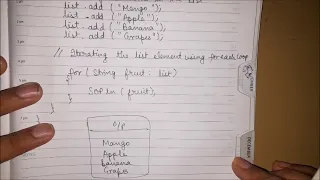 list.add("Mango");
list.add("Apple");
list.add("Banana");
list.add("Grapes");
// Iterating the list element using for each loop
for (String fruit : list)
{
SOPln (fruit);
}
}
}
O/P
Mango
Apple
Banana
Grapes